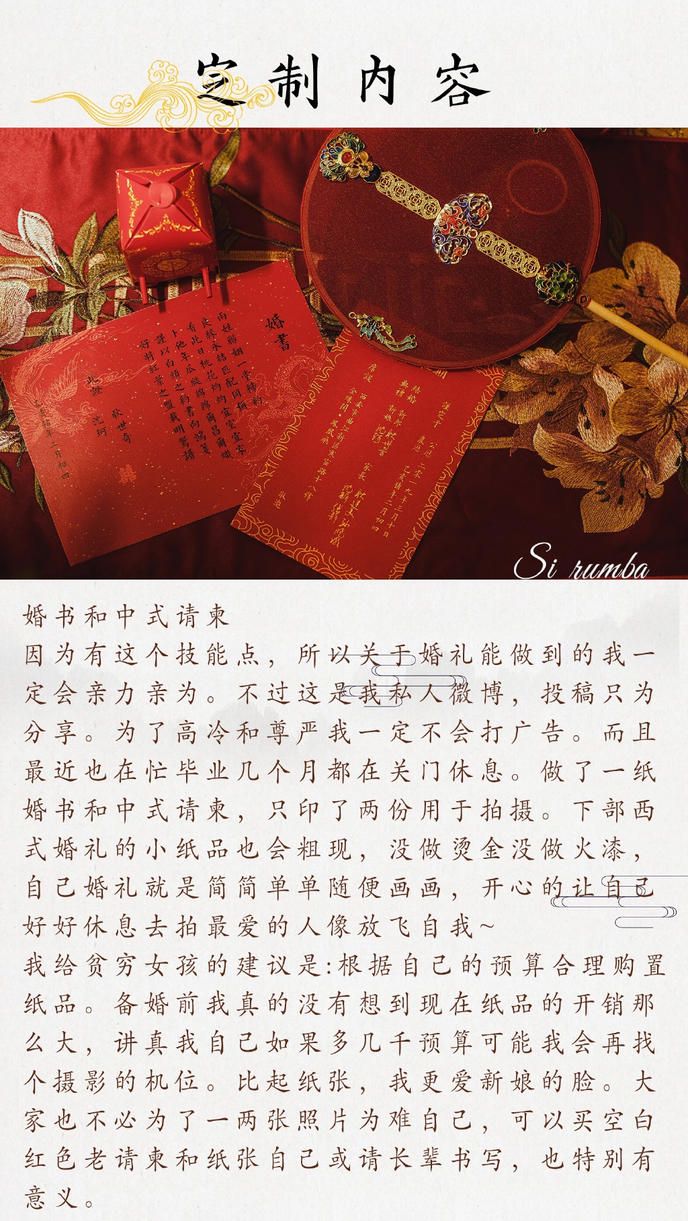 定制内容
婚書
Si rumba
婚书和中式请柬
因为有这个技能点，所以关于婚礼能做到的我一
定会亲力亲为。不过这是我私人微博，投稿只为
分享。为了高冷和尊严我一定不会打广告。而且
最近也在忙毕业几个月都在关门休息。做了一纸
婚书和中式请柬，只印了两份用于拍摄。下部西
式婚礼的小纸品也会粗现，没做烫金没做火漆，
自己婚礼就是简简单单随便画画，开心的让自己
好好休息去拍最爱的人像放飞自我~
我给贫穷女孩的建议是:根据自己的预算合理购置
纸品。备婚前我真的没有想到现在纸品的开销那
么大，讲真我自己如果多几千预算可能我会再找
个摄影的机位。比起纸张，我更爱新娘的脸。大
家也不必为了一两张照片为难自己，可以买空白
红色老请柬和纸张自己或请长辈书写，也特别有
意义。